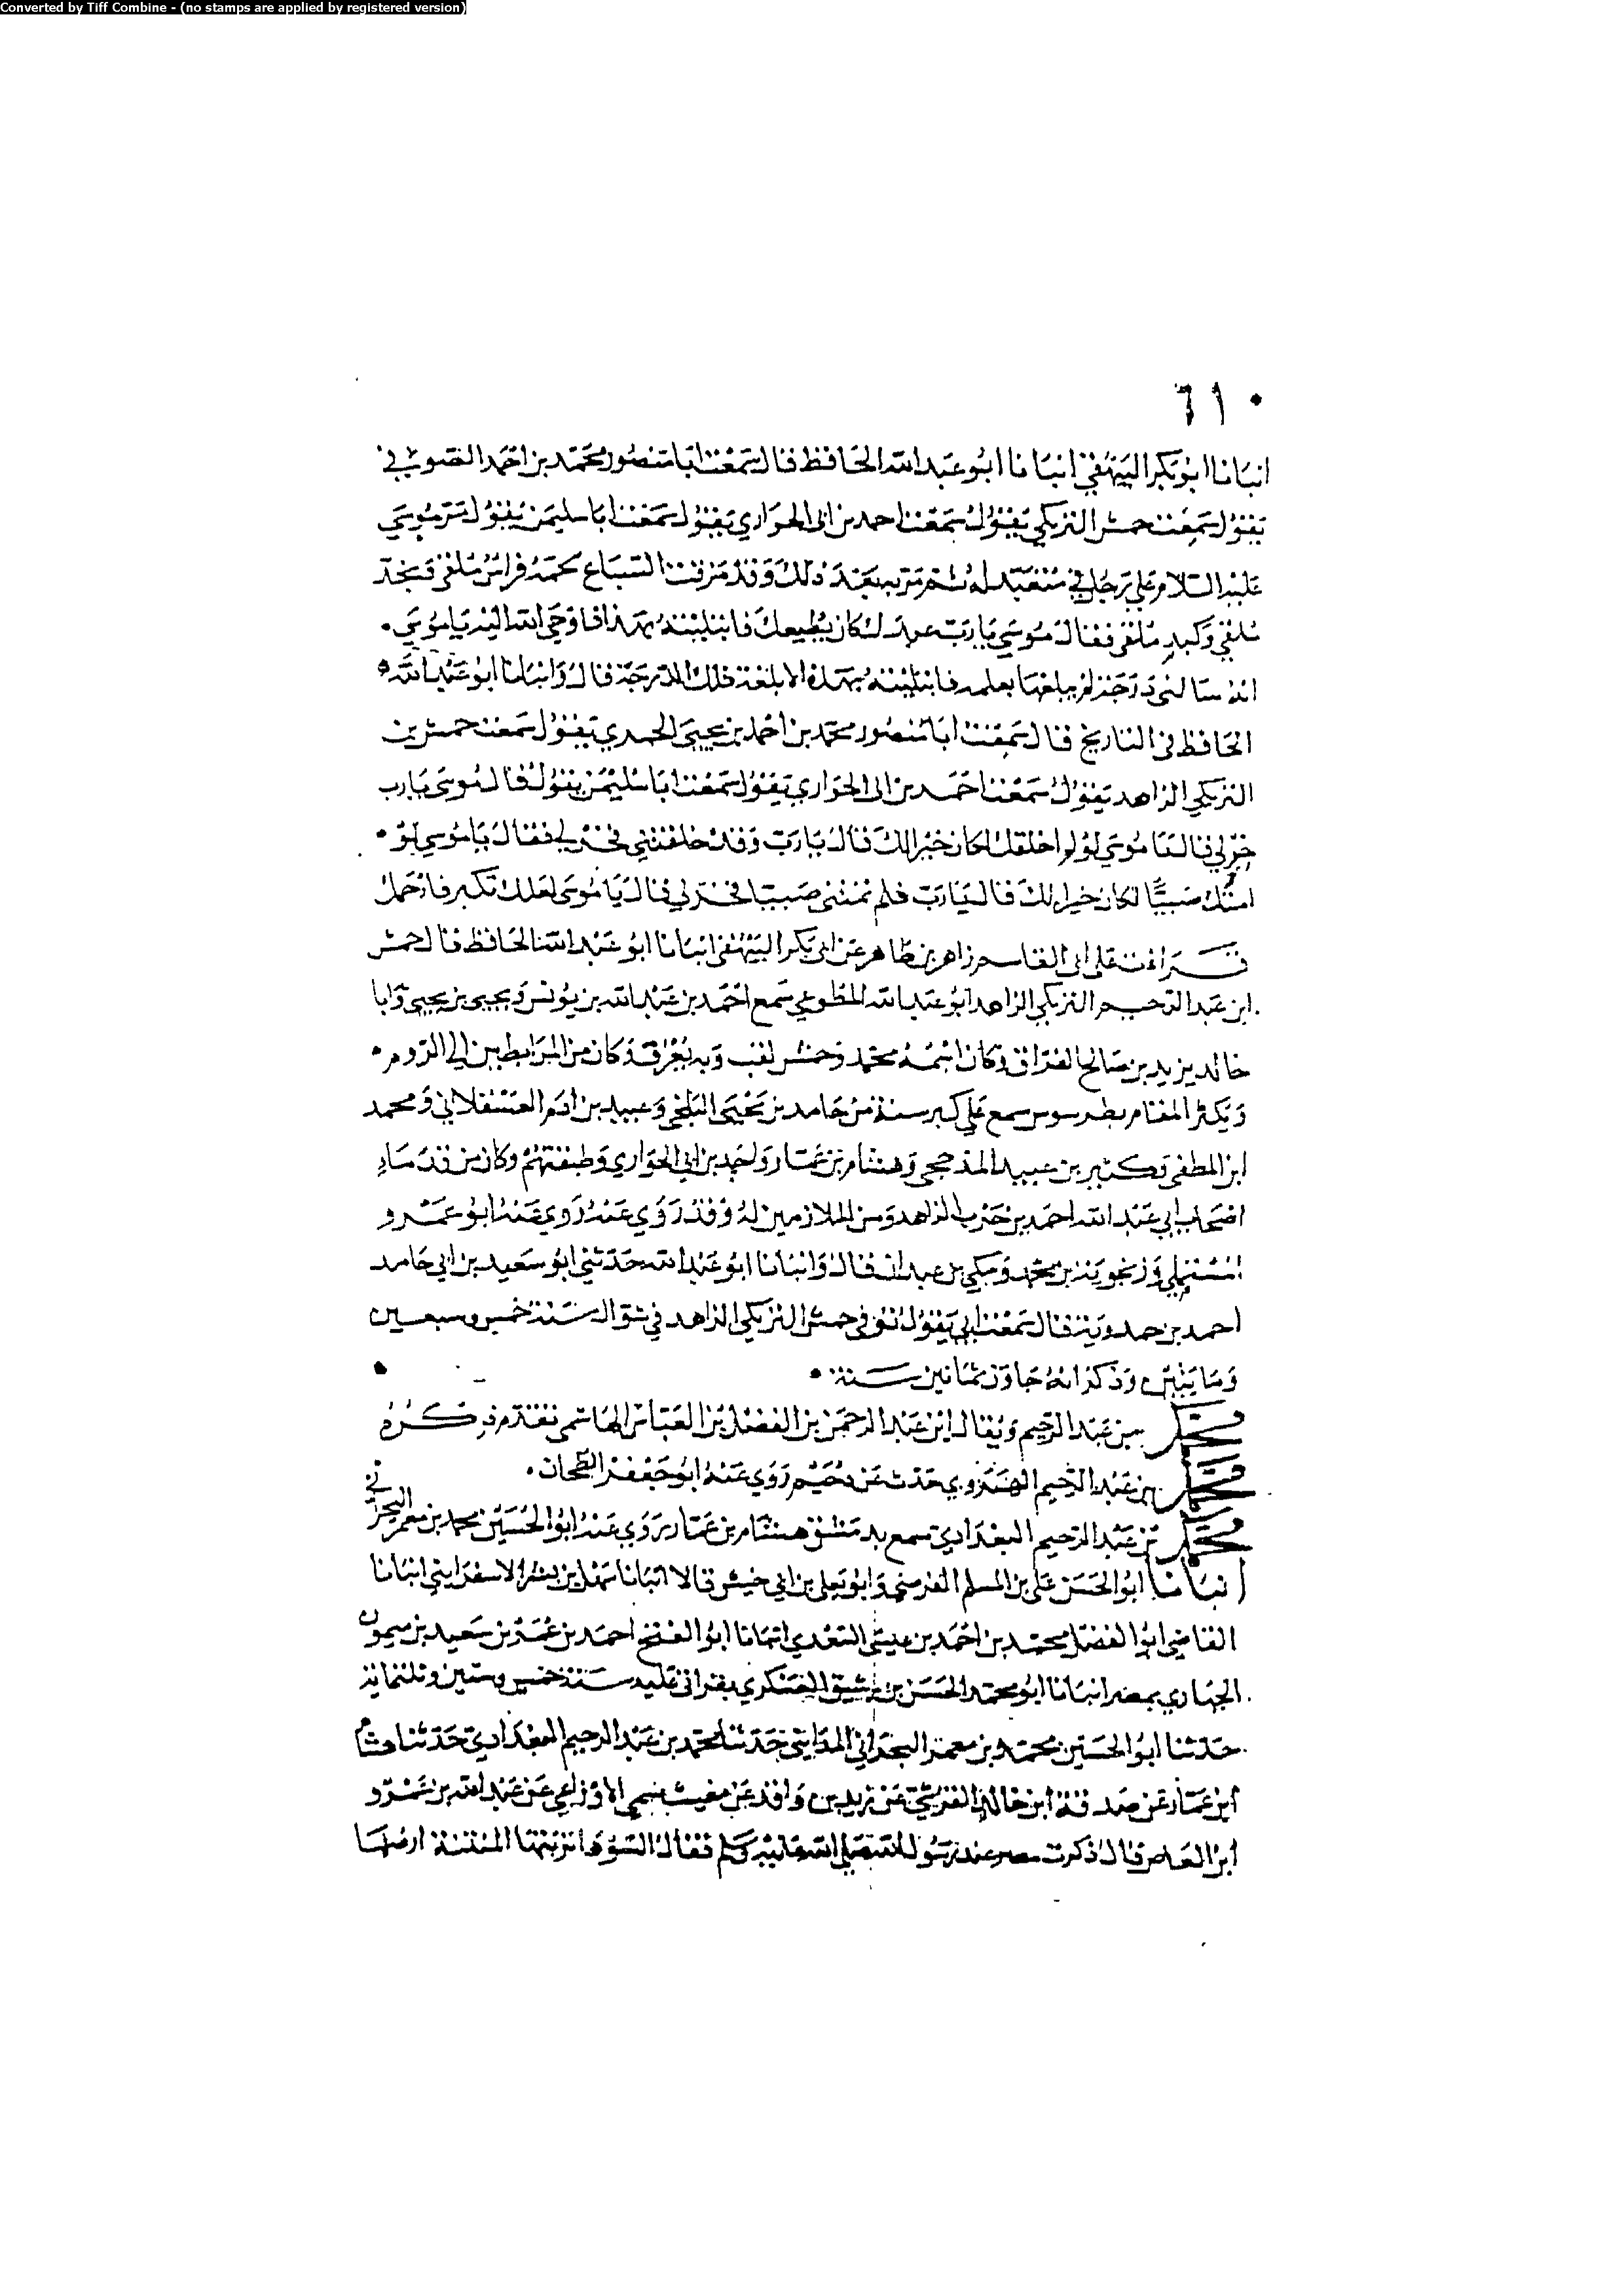 Converted by Tiff Combine - (no stamps are applied by registered version)
٦١٠
انبانا ابو بكر البيهقي انبانا ابو عبد الله الحافظ قال سمعت ابا منصور محمد بن احمد الصوفي
يقول سمعت حمش التركي يقول سمعت احمد بن ابى الحواري يقول سمعت ابا سليمن يقول مر موسى
عليه السلام على رجل في متعبد له ثم مر به بعد ذلك وقد مزقت السباع لحمه فراس ملقى فخذ
ملقي وكبد ملقى فقال موسى يا رب عبدك كان يطيعك فابتليته بهذا فاوحى الله اليه يا موسى
انه سالني درجة لم يبلغها بعلمه فابتليته بهذه الابلغه تلك الدرجة قال وانبانا ابو عبد الله
الحافظ في التاريخ قال سمعت ابا منصور محمد بن احمد بن يحيى يقول سمعت حمش بن
التركي الزاهد يقول سمعت احمد بن ابى الحواري يقول سمعت ابا سليمن يقول قال موسى يا رب
خر لي قال يا موسى لو لم اخلقك لكان خيرا لك قال يا رب وقد خلقتني فخر لي فقال يا موسى لو
امتك صبيا لكان خيرا لك قال يا رب فلم تمتني صبيا فخر لي قال يا موسى لعلك تكبر فارحمك
قرات على ابى القاسم زاهر بن طاهر عن ابى بكر البيهقى انبانا ابو عبد الله الحافظ قال حمش
ابن عبد الرحيم التركي الزاهد ابو عبد الله المطوعي سمع احمد بن عبد الله بن يونس ويحيى بن يحيى وابا
خالد يزيد بن صالح الفرا وكان اسمه محمد وحمش لقب وبه يعرف وكان من المرابطين الى الروم
ويكثر المقام بطرسوس سمع على كبر سنه من حامد بن يحيى البلخي وعبيد بن ادم العسقلاني ومحمد
ابن المصفى وكثير بن عبيد المذحجي وهشام بن عمار واحمد بن ابي الحواري وطبقتهم وكان من
اصحاب ابي عبد الله احمد بن حرب الزاهد ومن الملازمين له وقد روى عنه روى عنه ابو عمرو
المستملي وزنجويه بن محمد ومكي بن عبدان قال وانبانا ابو عبد الله حدثني ابو سعيد بن ابي حامد
احمد بن حمدويه قال سمعت ابي يقول توفي حمش التركي الزاهد في شوال سنة خمس وسبعين
وما يتين وذكر انه جاوز ثمانين سنة
محمد بن عبد الرحيم ويقال ابن عبد الرحمن بن الفضل بن العباس الهاشمي تقدم ذكره
محمد بن عبد الرحيم الهروي حدث عن دحيم روى عنه ابو جعفر الطحان
محمد بن عبد الرحيم البغدادي سمع بدمشق هشام بن عمار روى عنه ابو الحسين محمد بن معمر البحراني
انبانا ابو الحسن على بن المسلم الفرضي وابو يعلى بن ابي خيش قالا انبانا سهل بن بشر الاسفرايني انبانا
القاضي ابو الفضل محمد بن احمد بن عيسى السعدي انبانا ابو الفتح احمد بن عمر بن سعيد بن ميمون
الجهازي بمصر انبانا ابو محمد الحسن بن رشيق العسكري بقراتي عليه سنة خمس وستين وثلثماية
حدثنا ابو الحسين محمد بن معمر البحراني المدايني حدثنا محمد بن عبد الرحيم البغدادي حدثنا هشام
ابن عمار عن صدقة ابن خالد القرشي عن زيد بن واقد عن مغيث بن سمي الاوزاعي عن عبد الله بن عمرو
ابن العاص قال ذكرت مصر عند رسول الله صلى الله عليه وسلم فقال تربتها المنتنة ارضها